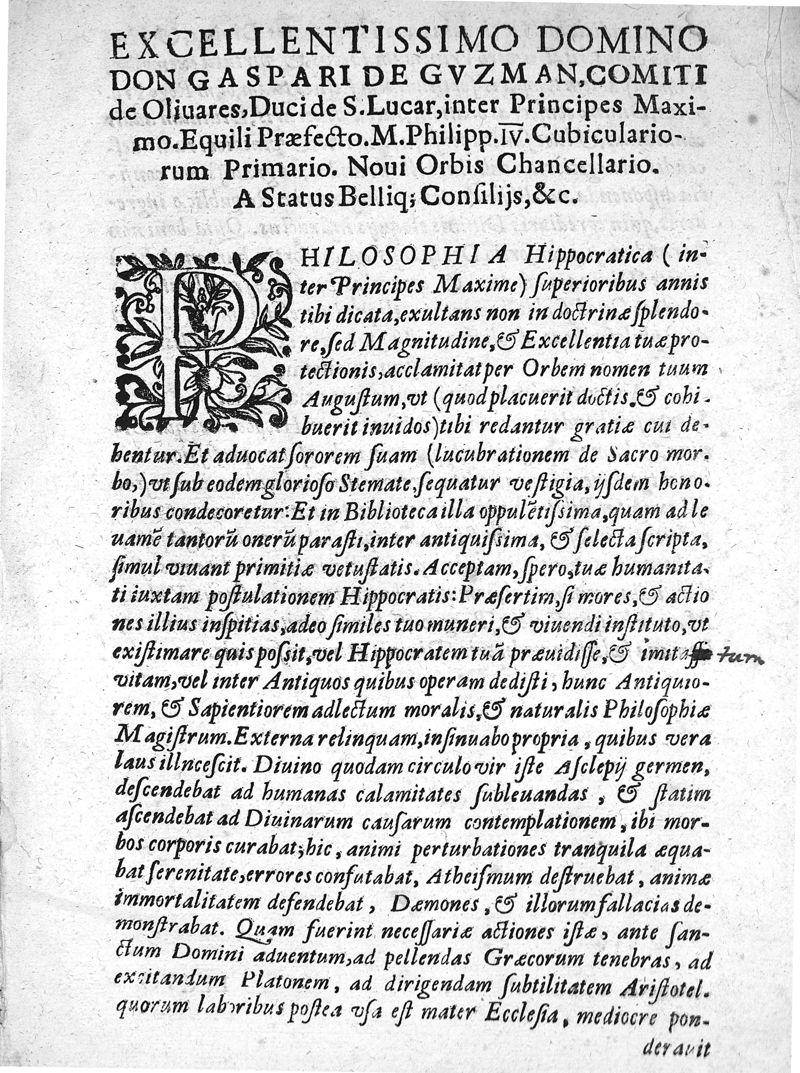 EXCELLENTISSIMO DOMINO
DON GASPARI DE GVZMAN, COMITI
de Oliuares, Duci de S. Lucar, inter Principes Maxi-
mo. Equili Præfecto. M. Philipp. IV. Cubiculario-
rum Primario. Noui Orbis Chancellario.
A Status Belliq; Consilijs, &c.
PHILOSOPHIA Hippocratica (in-
ter Principes Maxime) superioribus annis
tibi dicata, exultans non in doctrinæ splendo-
re, sed Magnitudine, & Excellentia tuæ pro-
tectionis, acclamitat per Orbem nomen tuum
Augustum, vt (quod placuerit doctis, & cohi-
buerit inuidos) tibi redantur gratiæ cui de-
bentur. Et aduocat sororem suam (lucubrationem de Sacro mor-
bo,) vt sub eodem glorioso Stemate, sequatur vestigia, ijsdem hono-
ribus condecoretur: Et in Biblioteca illa oppulētissima, quam ad le
uamē tantorū onerū parasti, inter antiquissima, & selecta scripta,
simul viuant primitiæ vetustatis. Acceptam, spero, tuæ humanita-
ti iuxtam postulationem Hippocratis: Præsertim, si mores, & actio
nes illius inspitias, adeo similes tuo muneri, & viuendi instituto, vt
existimare quis possit, vel Hippocratem tuā præuidisse, & imita tum
vitam, vel inter Antiquos quibus operam dedisti, hunc Antiquio-
rem, & Sapientiorem adlectum moralis, & naturalis Philosophiæ
Magistrum. Externa relinquam, insinuabo propria, quibus vera
laus illncescit. Diuino quodam circulo vir iste Asclepij germen,
descendebat ad humanas calamitates subleuandas, & statim
ascendebat ad Diuinarum causarum contemplationem, ibi mor-
bos corporis curabat; hic, animi perturbationes tranquila æqua-
bat serenitate, errores confutabat, Atheismum destruebat, animæ
immortalitatem defendebat, Dæmones, & illorum fallacias de-
monstrabat. Quam fuerint necessariæ actiones istæ, ante san-
ctum Domini aduentum, ad pellendas Græcorum tenebras, ad
excitandum Platonem, ad dirigendam subtilitatem Aristotel.
quorum laboribus postea vsa est mater Ecclesia, mediocre pon-
derauit